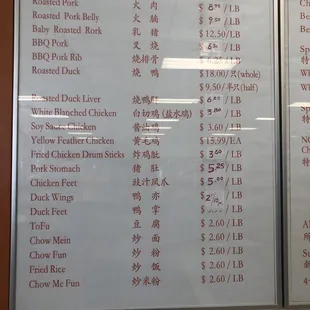 Roasted Pork 火肉 $ /LB
Roasted Pork Belly 火腩 $ 9.50/LB
Baby Roasted Rork 乳豬 $12.50/LB
BBQ Pork 叉燒 $ /LB
BBQ Pork Rib 燒排骨 $ /LB
Roasted Duck 燒鴨 $18.00/只(whole)
$9.50/半只(half)
Roasted Duck Liver 燒鴨肝 $ /LB
White Blanched Chicken 白切鷄(盐水鷄) $ /LB
Soy Sauce Chicken $ 3.60/LB
Yellow Feather Chicken 黄毛鷄 $13.99/EA
Fried Chicken Drum Sticks 炸鷄肶 $ 3.60/LB
Pork Stomach 猪肚 $ 5.25/LB
Chicken Feet 豉汁鳳爪 $ 5.00/LB
Duck Wings 鴨亦 $ /LB
Duck Feet 鴨掌 $ /LB
ToFu 豆腐 $ 2.60/LB
Chow Mein 炒面 $ 2.60/LB
Chow Fun 炒粉 $ 2.60/LB
Fried Rice 炒飯 $ 2.60/LB
Chow Me Fun 炒米粉 $ 2.60/LB